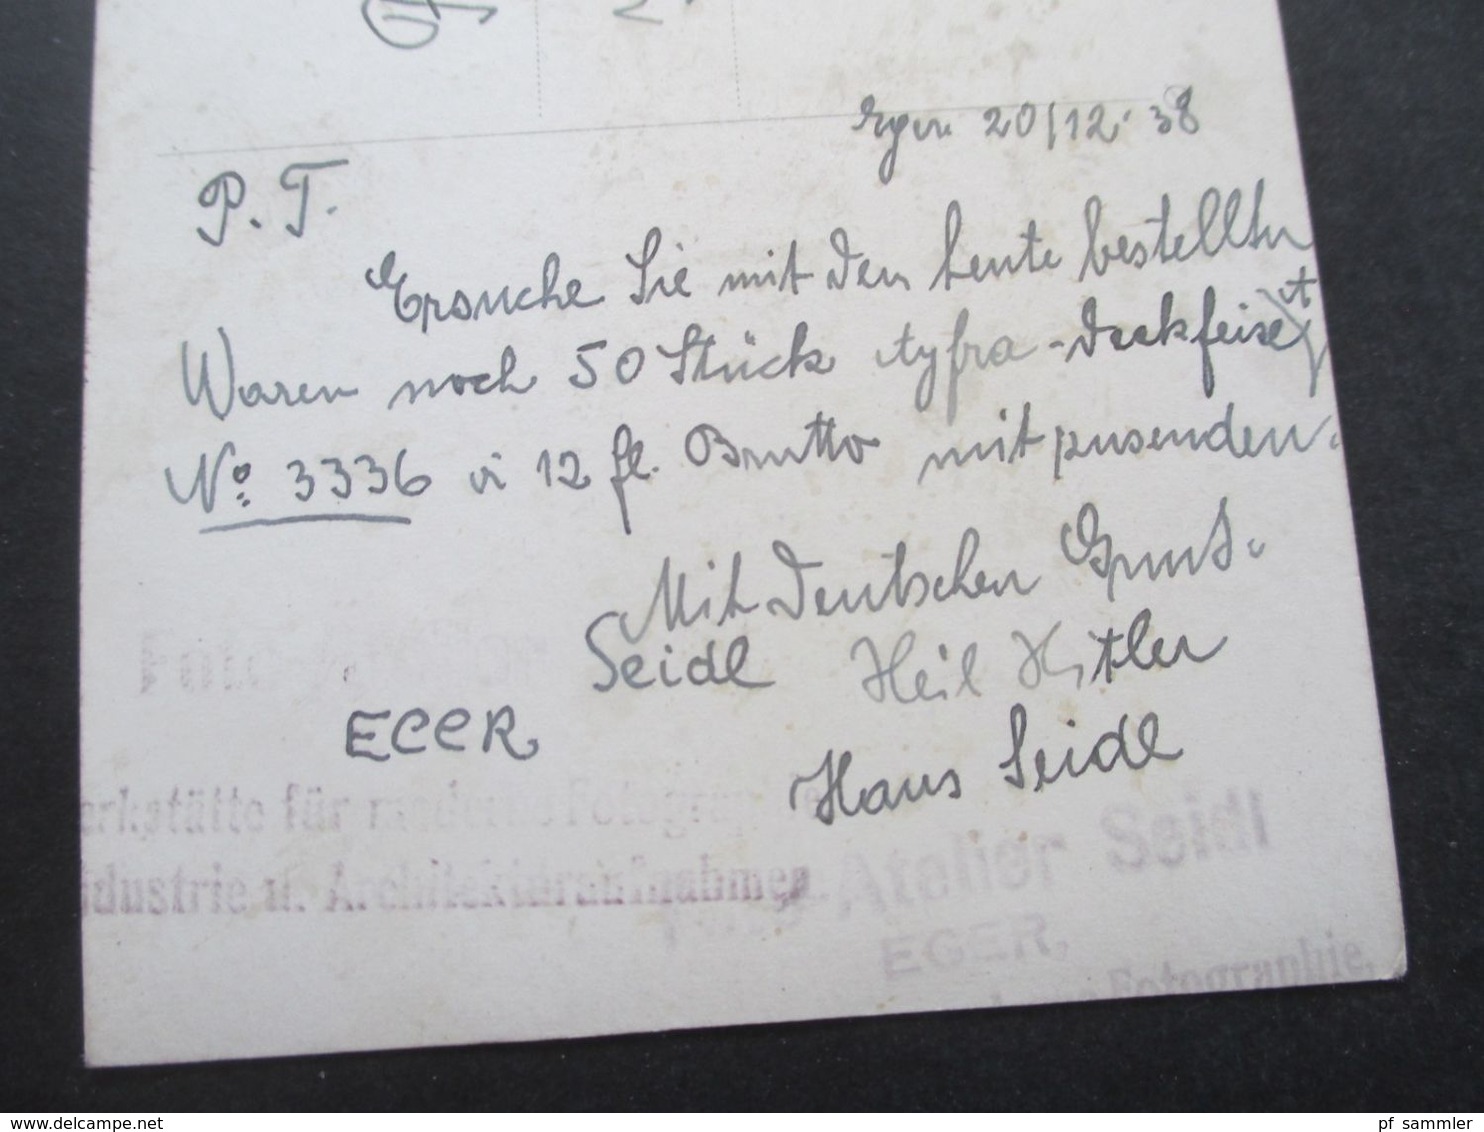 Eger 20/12. 38
P. T.
Ersuche Sie mit den heute bestellten
Waren noch 50 Stück
No 3336 à 12 fl. Brutto mit zusenden.
Mit Deutschen Gruß.
Seidl Heil Hitler
EGER, Hans Seidl
erkstätte für moderne Fotogra
dustrie u. Architekturaufnahmen
Atelier Seidl
EGER,
Fotographie.
www.delcampe.net
pf_sammler